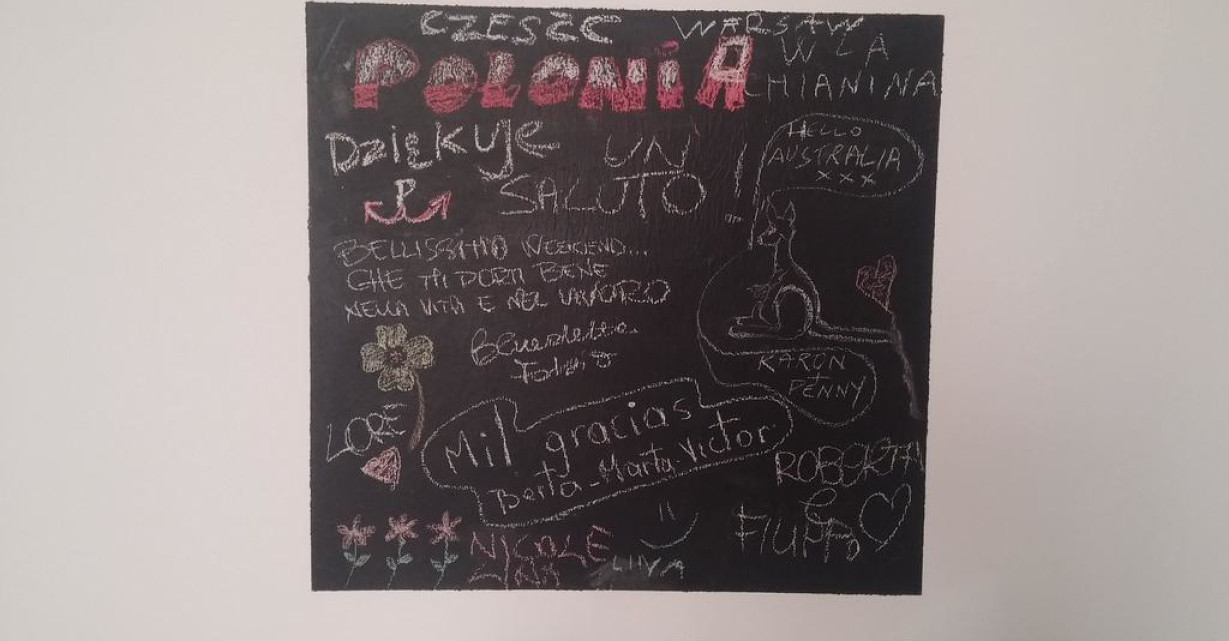 CZEŚĆ WARSAW
POLONIA
W LA
CHIANINA
Dziękuje
UN
SALUTO!
HELLO
AUSTRALIA
xxx
P
BELLISSIMO WEEKEND...
CHE TI PORTI BENE
NELLA VITA E NEL LAVORO
KARON
PENNY
LORE
Mil gracias
Berta-Marta-Victor
ROBERTA
E
FILIPPO
NICOLE
LINA
LINA